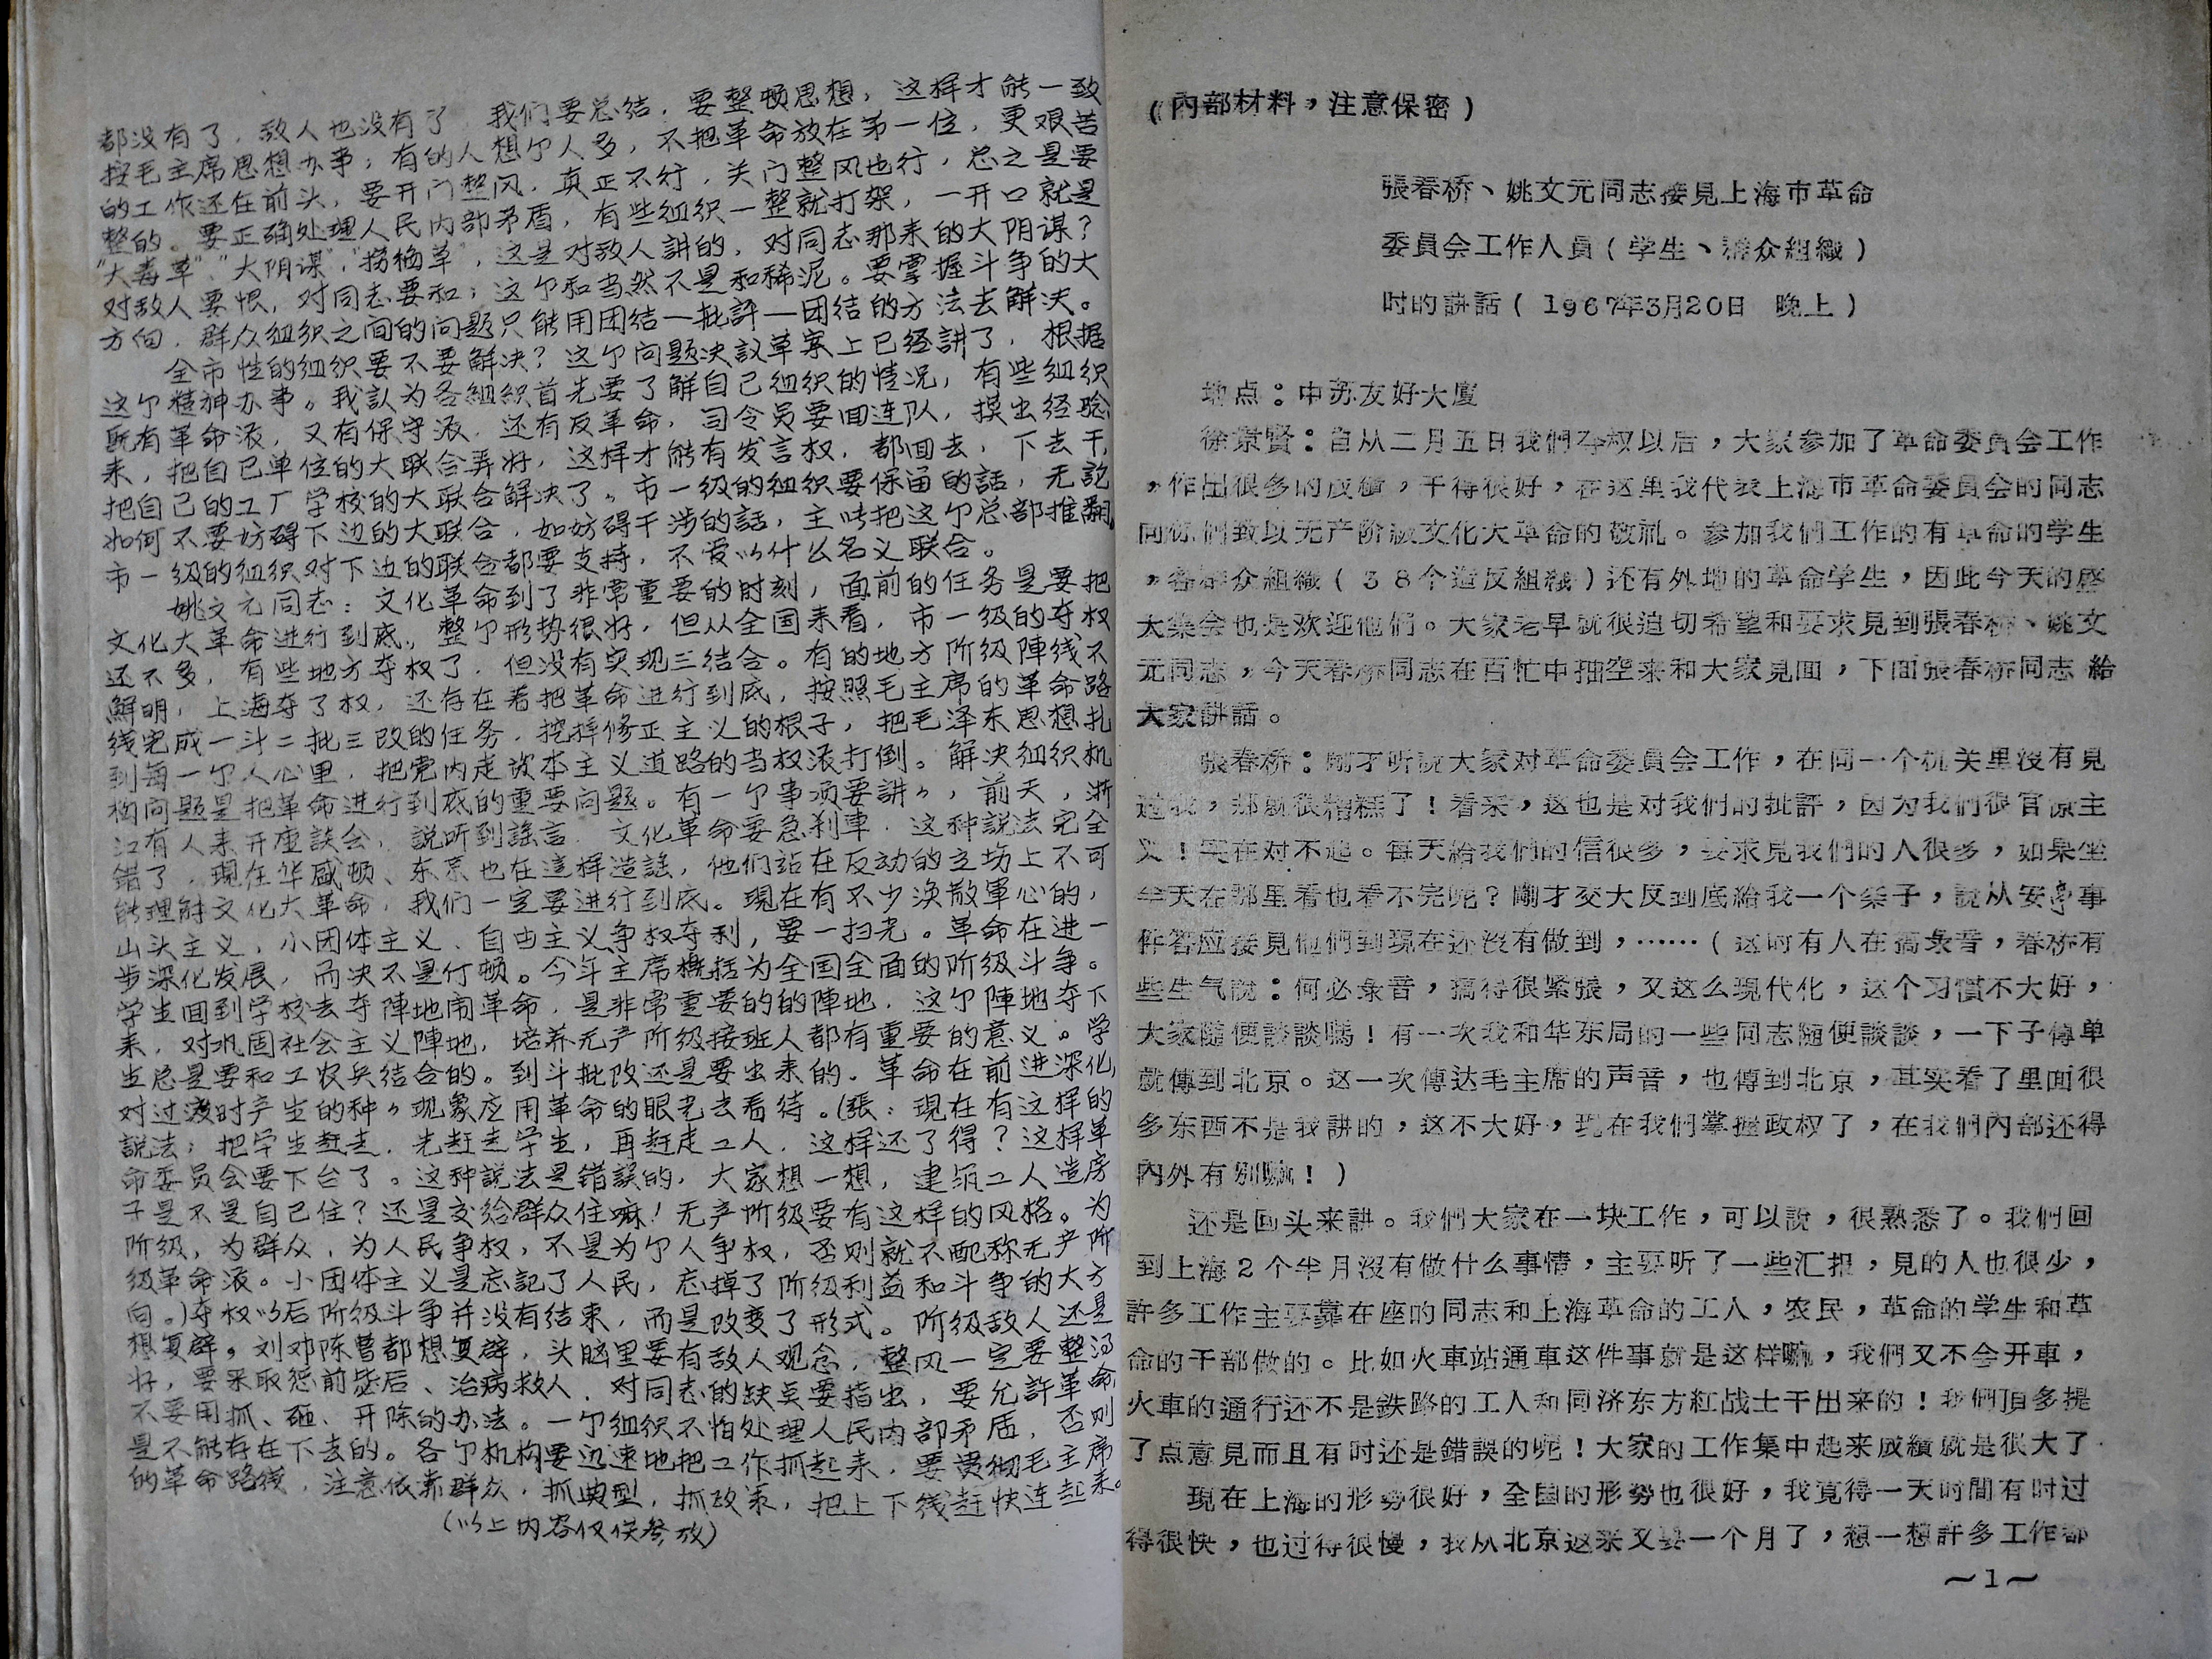 都没有了，敌人也没有了，我们要总结，要整顿思想，这样才能一致
按毛主席思想办事；有的人想个人多，不把革命放在第一位，更艰苦
的工作还在前头，要开门整风，真正不行，关门整风也行，总之是要
整的。要正确处理人民内部矛盾，有些组织一整就打架，一开口就是
“大毒草”、“大阴谋”，这是对敌人讲的，对同志那来的大阴谋？
对敌人要恨，对同志要和；这个和当然不是和稀泥。要掌握斗争的大
方向，群众组织之间的问题只能用团结—批評—团结的方法去解决。
全市性的组织要不要解决？这个问题决議草案上已经讲了，根据
这个精神办事。我認为各组织首先要了解自己组织的情况，有些组织
既有革命派，又有保守派，还有反革命，司令员要回连队，摸出经驗
来，把自己单位的大联合弄好，这样才能有发言权，都回去，下去干，
把自己的工厂学校的大联合解决了。市一级的组织要保留的話，无論
如何不要妨碍下边的大联合，如妨碍干涉的話，主
把这个总部推翻，
市一级的组织对下边的联合都要支持，不管以什么名义联合。
姚文元同志：文化革命到了非常重要的时刻，面前的任务是要把
文化大革命进行到底。整个形势很好，但从全国来看，市一级的夺权
还不多，有些地方夺权了，但没有实现三结合。有的地方阶级陣线不
鮮明，上海夺了权，还存在着把革命进行到底，按照毛主席的革命路
线完成一斗二批三改的任务，挖掉修正主义的根子，把毛泽东思想扎
到每一个人心里，把党内走资本主义道路的当权派打倒。解决组织机
构问题是把革命进行到底的重要问题。有一个事项要讲々，前天，浙
江有人来开座談会，説听到謡言，文化革命要急刹車，这种説法完全
错了，現在华盛顿、东京也在這样造謡，他们站在反动的立場上不可
能理解文化大革命，我们一定要进行到底。現在有不少渙散軍心的，
山头主义，小团体主义、自由主义争权夺利，要一扫光。革命在进一
步深化发展，而决不是停顿。今年主席概括为全国全面的阶级斗争。
学生回到学校去夺陣地闹革命，是非常重要的的陣地，这个陣地夺下
来，对巩固社会主义陣地，培养无产阶级接班人都有重要的意义。学
生总是要和工农兵结合的。到斗批改还是要出来的。革命在前进深化，
对过渡时产生的种々现象应用革命的眼光去看待。（張：現在有这样的
説法；把学生赶走，先赶走学生，再赶走工人，这样还了得？这样革
命委员会要下台了。这种説法是错誤的，大家想一想，建筑工人造房
子是不是自己住？还是交给群众住嘛！无产阶级要有这样的风格。为
阶级，为群众，为人民争权，不是为个人争权，否则就不配称无产阶
级革命派。小团体主义是忘記了人民，忘掉了阶级利益和斗争的大方
向。）夺权以后阶级斗争并没有结束，而是改变了形式。阶级敌人还是
想复辟。刘邓陈曹都想复辟，头脑里要有敌人观念，整风一定要整
好，要采取惩前毖后、治病救人，对同志的缺点要指出，要允許革命，
不要用抓、砸、开除的办法。一个组织不怕处理人民内部矛盾，否则
是不能存在下去的。各个机构要迅速地把工作抓起来，要贯彻毛主席
的革命路线，注意依靠群众，抓典型，抓政策，把上下线赶快连起来。
（以上内容仅供参攷）
（內部材料，注意保密）
張春桥、姚文元同志接見上海市革命
委員会工作人員（学生、群众組織）
时的講話（1967年3月20日 晚上）
地点：中苏友好大廈
徐景賢：自从二月五日我們夺权以后，大家参加了革命委員会工作
，作出很多的成績，干得很好，在这里我代表上海市革命委員会的同志
向你們致以无产阶級文化大革命的敬礼。参加我們工作的有革命的学生
，各群众組織（38个造反組織）还有外地的革命学生，因此今天的盛
大集会也是欢迎他們。大家老早就很迫切希望和要求見到張春桥、姚文
元同志，今天春桥同志在百忙中抽空来和大家見面，下面張春桥同志給
大家講話。
張春桥：剛才听說大家对革命委員会工作，在同一个机关里沒有見
过我，那就很糟糕了！看来，这也是对我們的批評，因为我們很官僚主
义！实在对不起。每天給我們的信很多，要求見我們的人很多，如果坐
半天在那里看也看不完呢？剛才交大反到底給我一个条子，說从安亭事
件答应接見他們到現在还沒有做到，……（这时有人在搞录音，春桥有
些生气說：何必录音，搞得很紧張，又这么現代化，这个习慣不大好，
大家随便談談嗎！有一次我和华东局的一些同志随便談談，一下子傳单
就傳到北京。这一次傳达毛主席的声音，也傳到北京，其实看了里面很
多东西不是我講的，这不大好，現在我們掌握政权了，在我們內部还得
內外有別嘛！）
还是回头来講。我們大家在一块工作，可以說，很熟悉了。我們回
到上海2个半月沒有做什么事情，主要听了一些汇报，見的人也很少，
許多工作主要靠在座的同志和上海革命的工人，农民，革命的学生和革
命的干部做的。比如火車站通車这件事就是这样嘛，我們又不会开車，
火車的通行还不是鉄路的工人和同济东方紅战士干出来的！我們頂多提
了点意見而且有时还是錯誤的呢！大家的工作集中起来成績就是很大了。
現在上海的形势很好，全国的形势也很好，我覚得一天时間有时过
得很快，也过得很慢，我从北京返来又要一个月了，想一想許多工作都
～1～